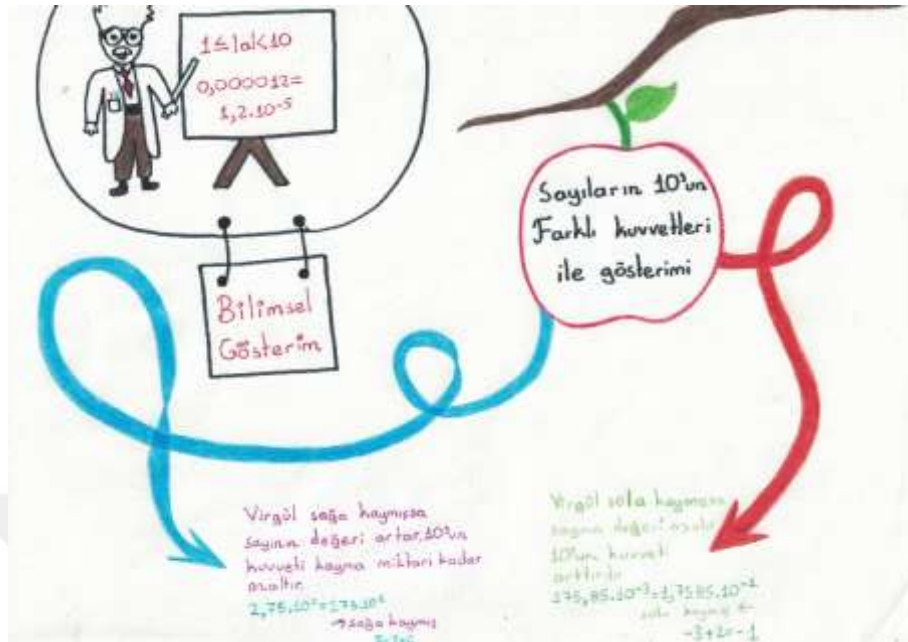 1≤|a|<10
0,000012=
1,2.10⁻⁵
Sayıların 10'un
Farklı kuvvetleri
ile gösterimi
Bilimsel
Gösterim
Virgül sağa kaymışsa
sayının değeri artar, 10'un
kuvveti kayma miktarı kadar
azaltır.
→ sağa kaymış
Virgül sola kaymışsa
sayının değeri azalır
10'un kuvveti
arttırılır
175,85.10⁻³=1,7585.10⁻¹
sola kaymış ←
-3+2=-1